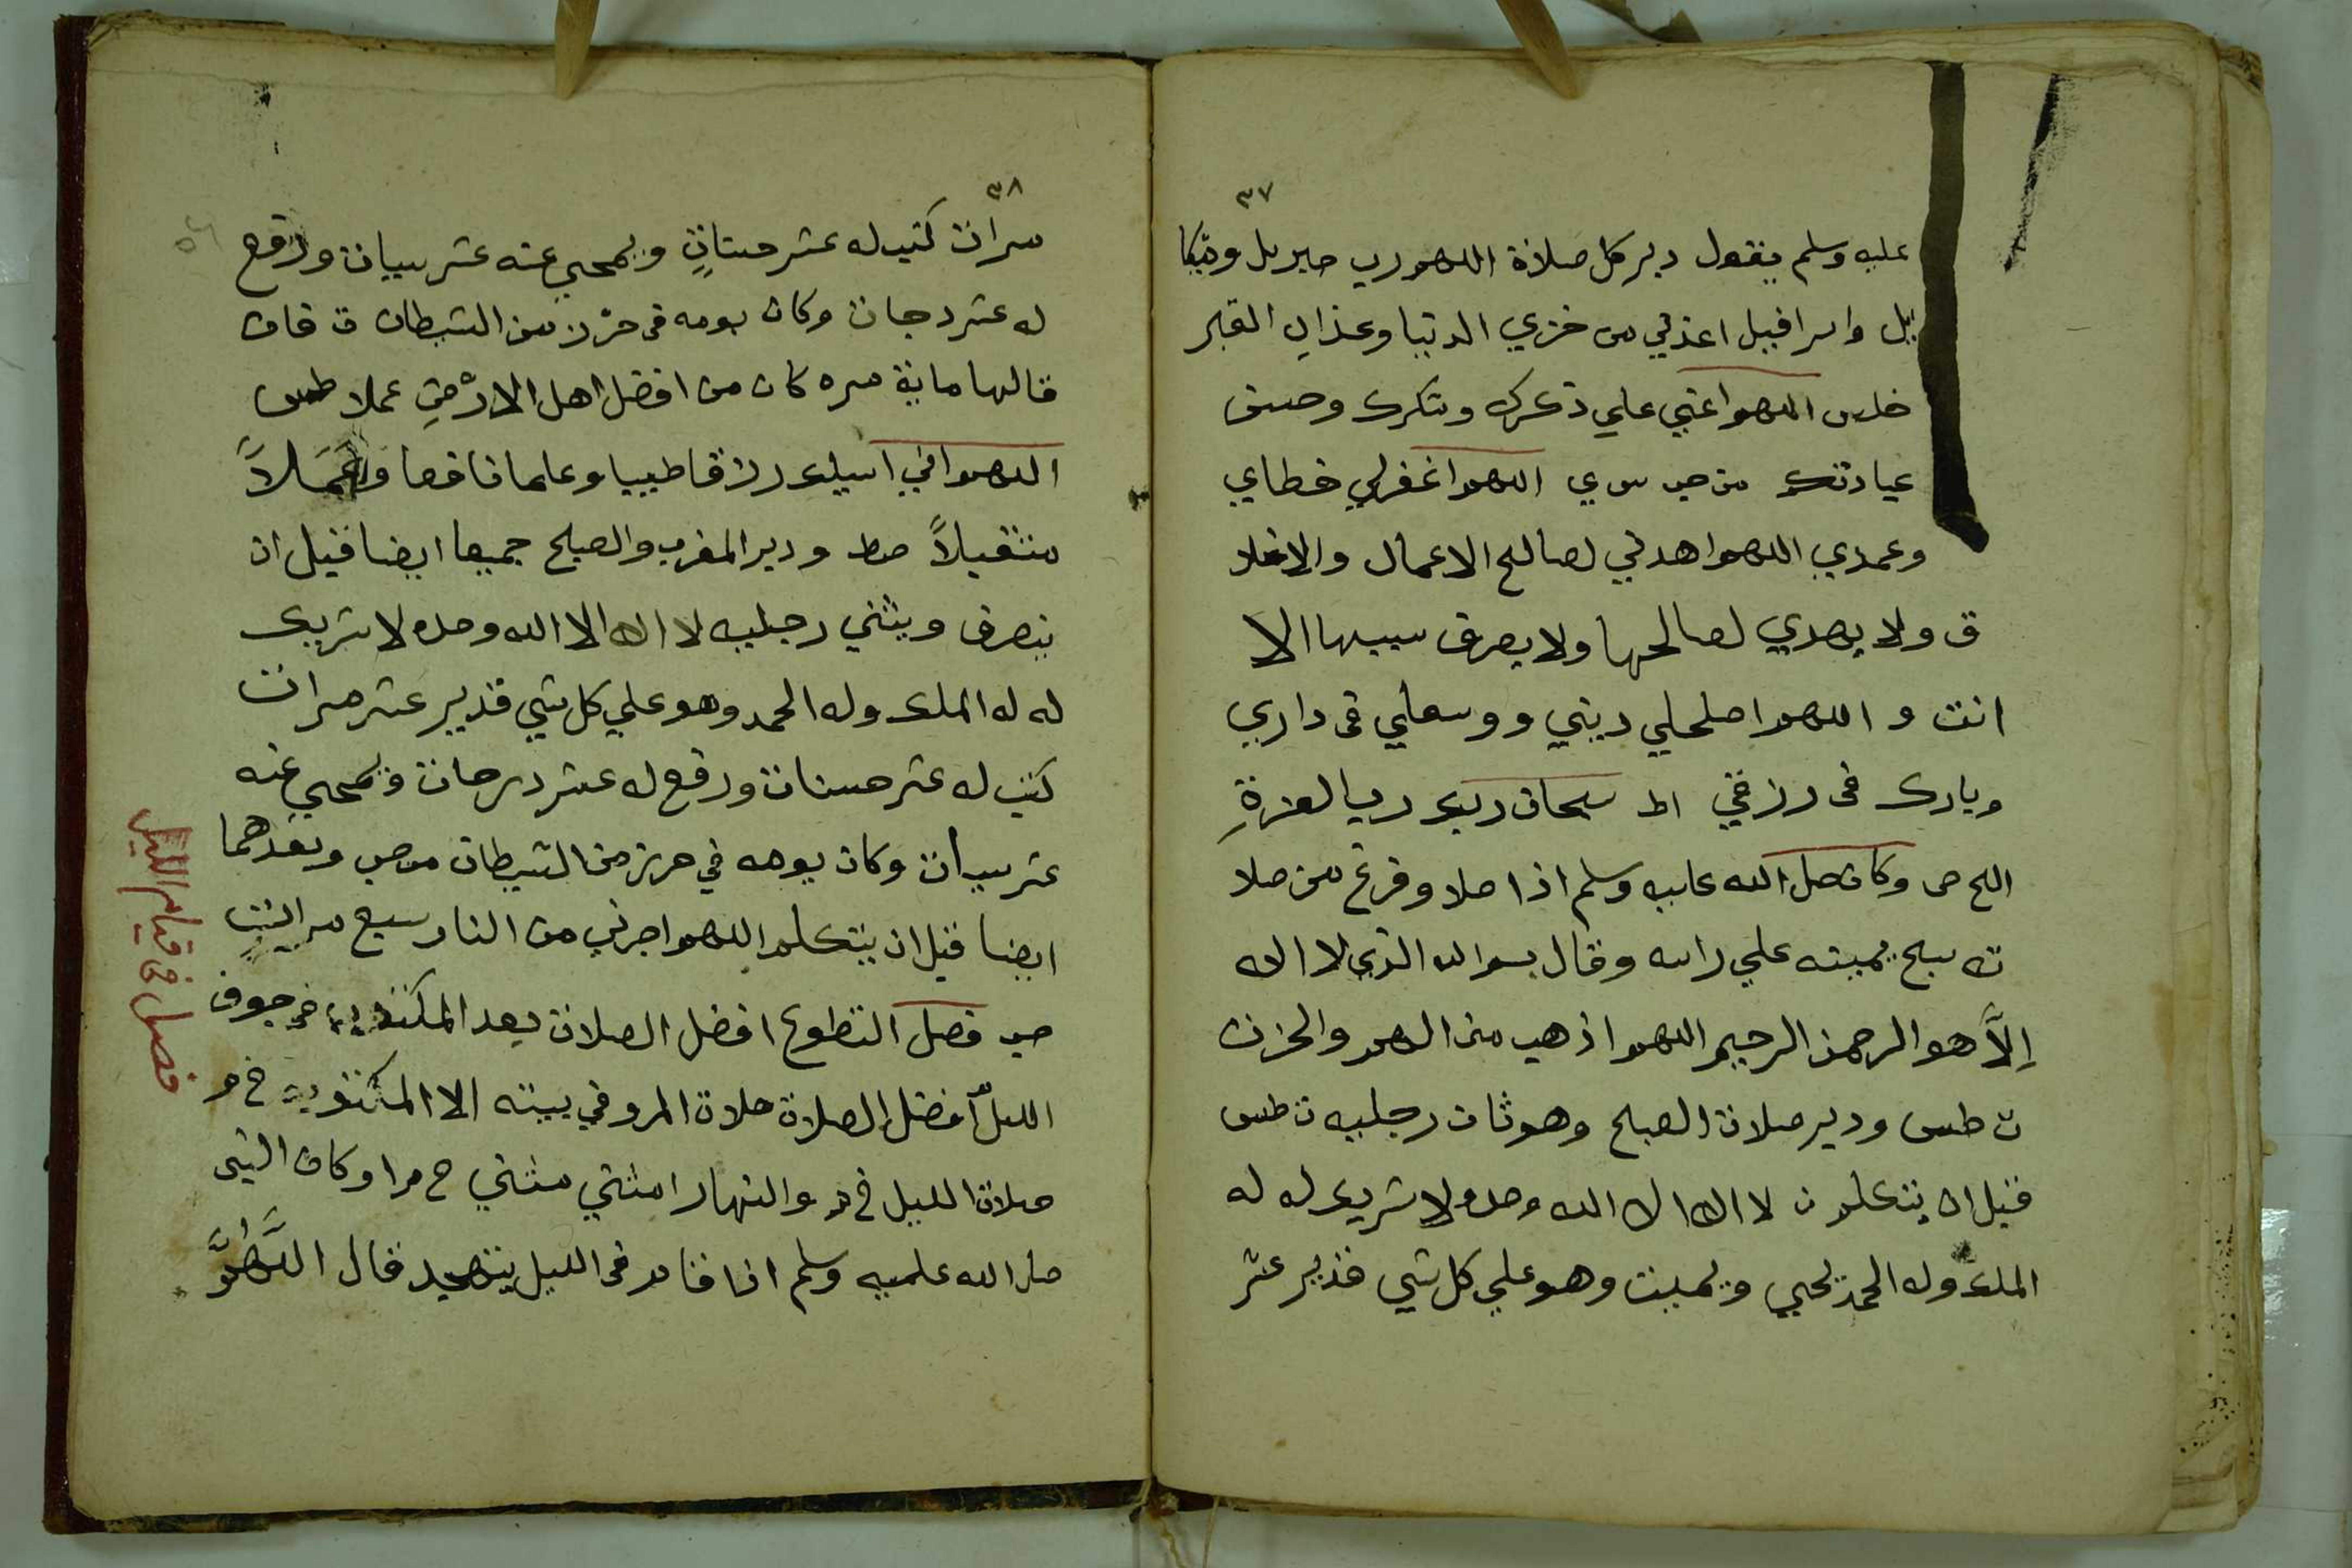 ٣٧
عليه وسلم يقول دبر كل صلاة اللهم رب جبريل وميكا
ئيل واسرافيل اعذني من خزي الدنيا وعذاب القبر
اللهم اعني علي ذكرك وشكرك وحسن
عبادتك من حب س ي اللهم اغفرلي خطاي
وعمدي اللهم اهدني لصالح الاعمال والاخلا
ق ولا يهدي لصالحها ولا يصرف سييها الا
انت و اللهم اصلحلي ديني ووسعلي في داري
وبارك في رزقي اط سبحان ربك رب العزةِ
الخ ص وكان صل الله عليه وسلم اذا صلا وفرغ من صلا
ته مسح بيمينه علي راسه وقال بسم الله الذي لا اله
اِلاَّ هو الرحمن الرحيم اللهم اذهب عني الهم والحزن
ت طس ودبر صلاة الصبح وهو ثان رجليه ت طس
قبل ان يتكلم ت لا اله الا الله وحده لا شريك له له
الملك وله الحمد يحيي ويميت وهو علي كل شي قدير عشر
٣٨
مرات كتب له عشر حسناتٍ ويمحي عنه عشر سيات ورفع
له عشر درجات وكان يومه في حرز من الشيطان ت فان
قالها ماية مره كان من افضل اهل الارْضِ عملا طس
اللهم اني اسيلك رزقا طيبا وعلما نافعا وعَمَلاً
متقبلاً صط ودبر المغرب والصبح جميعا ايضا قبل ان
ينصرف ويثني رجليه لا اله الا الله وحده لا شريك
له له الملك وله الحمد وهو علي كل شي قدير عشر مرات
كتب له عشر حسنات ورفع له عشر درجات ويمحي عنه
عشر سيات وكان يومه في حرز من الشيطان وبعدهما
ايضا قبل ان يتكلم اللهم اجرني من النار سبع مراتٍ
حب فصل التطوع افضل الصلاة بعد المكتوبة في جوف
الليل افضل الصلاة صلاة المرو في بيته الا المكتوبة خ م
صلاة الليل خ م والنهار ا مثني مثني خ م ا وكان النبي
صل الله عليه وسلم اذا قام في الليل يتهجد قال اللَّهُمَّ
فصل في قيام الليل